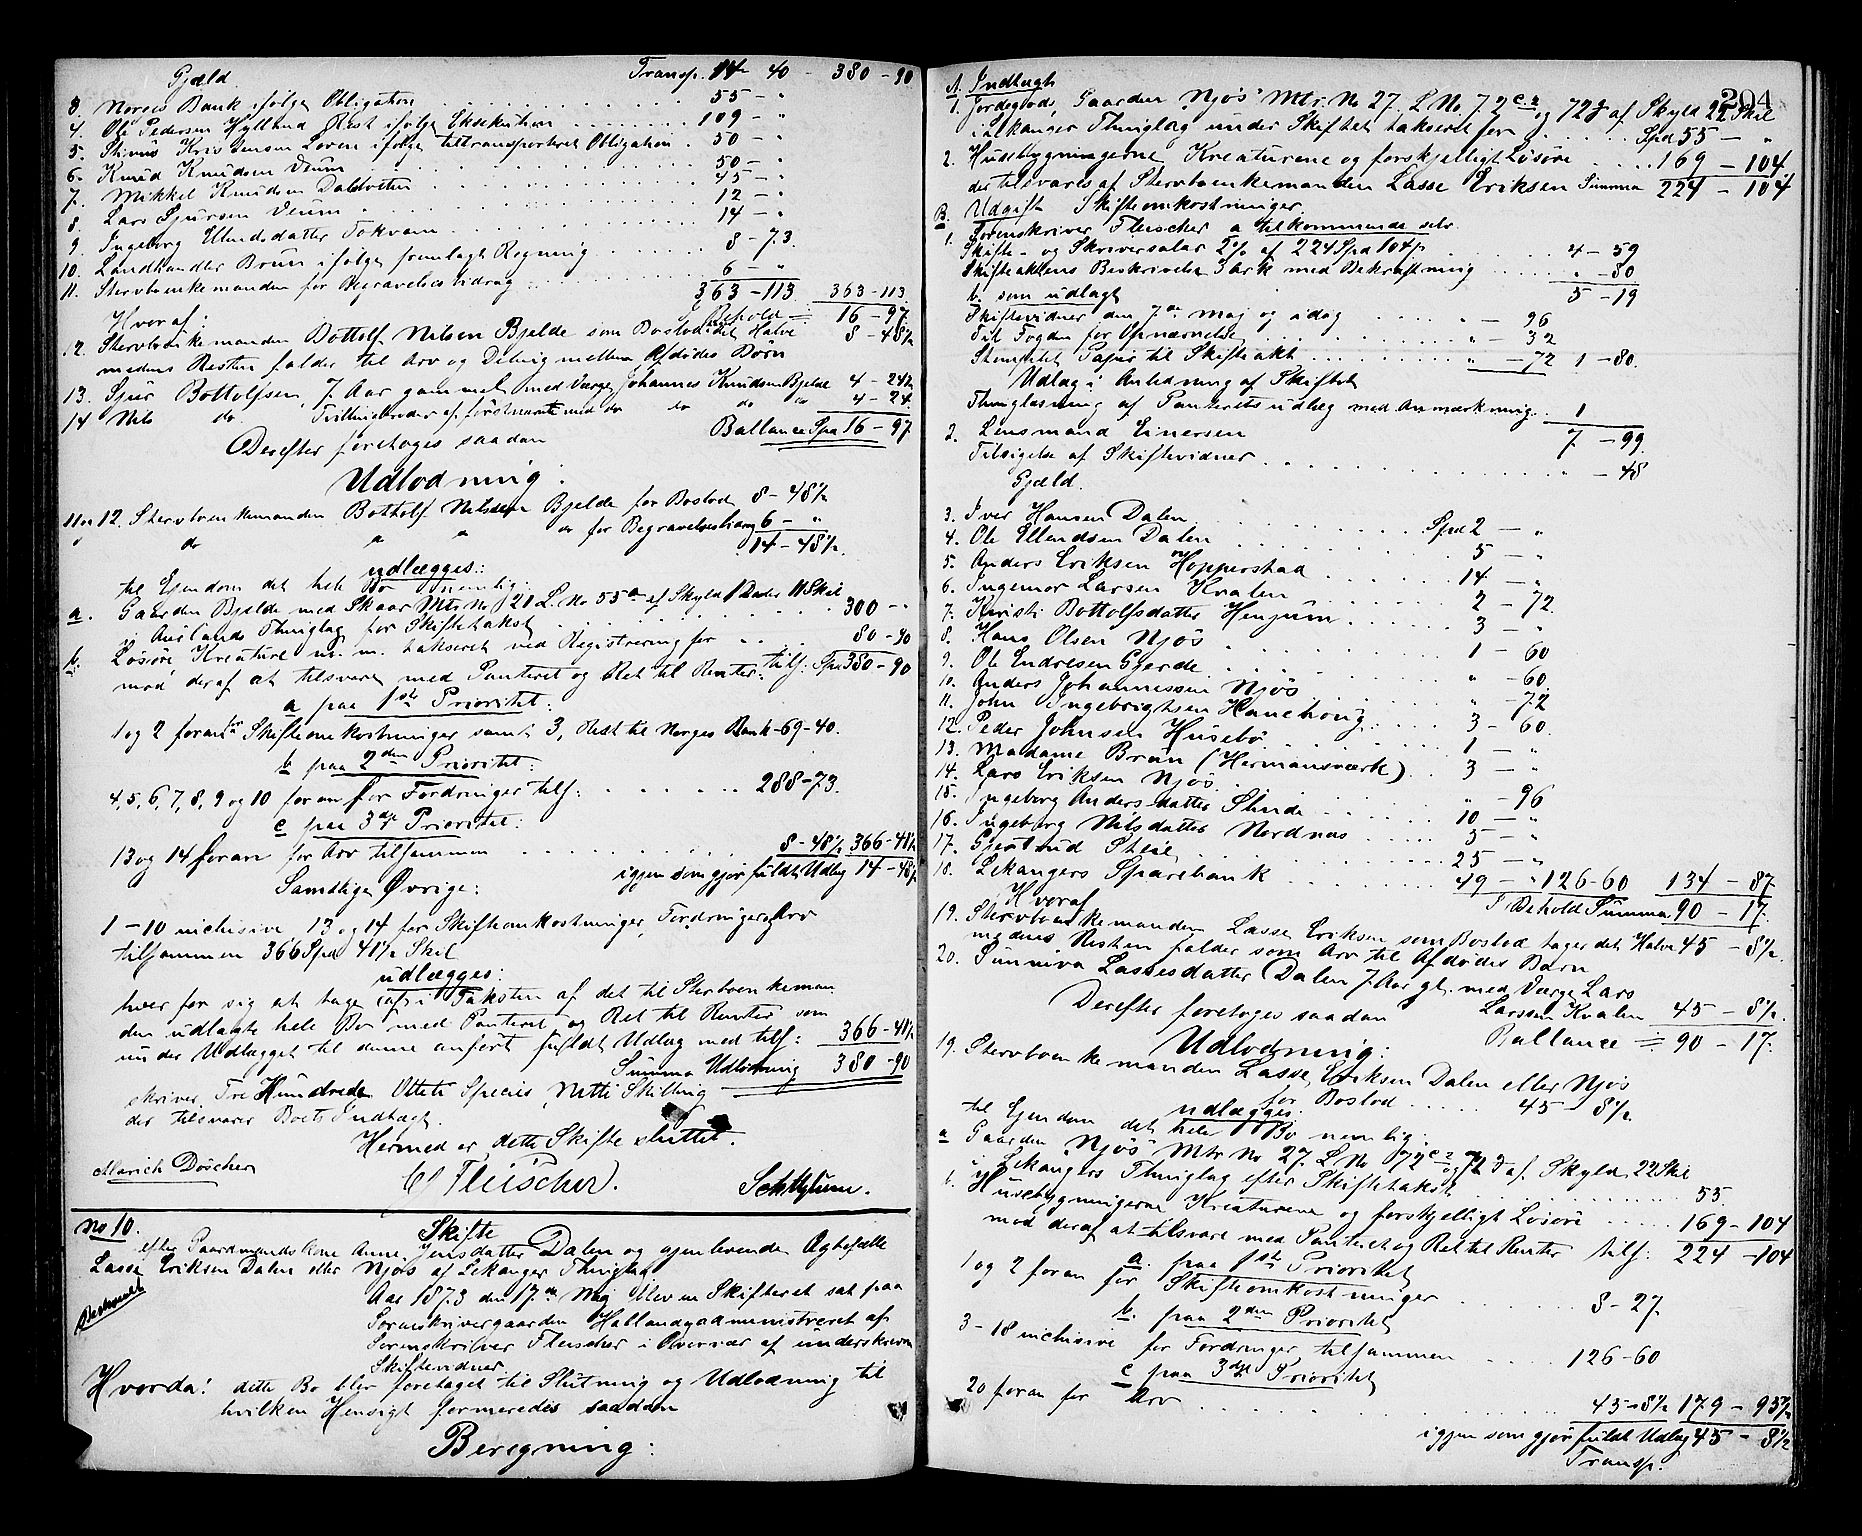 Gjæld Transp. 14 40 - 380 - 90
3. Norges Bank ifølge Obligation . . . 55 - "
4. Ole Pedersen Hylland Rest ifølge Eksekution . . . 109 - "
5. Stinius Kristensen Loven ifølge tiltransporteret Obligation . 50 - "
6. Knud Knudsen Veum . . . 50 - "
7. Mikkel Knudsen Dalsvten . . . 45 - "
8. Lars Sjursen Veum . . . 12 - "
9. Ingeborg Ellendsdatter Tokvam . . . 14 - "
10. Landhandler Brun ifølge fremlagt Regning . . . 8 - 73.
11. Stervboenkemanden for Begravelsesbidrag . . . 6 - "
363 - 113 363 - 113
Hvoraf: Behold = 16 - 97
12. Stervboenkemanden Bottolf Nilsen Bjelde som Boslod det Halve 8 - 48½
medens Resten falder til Arv og Deling mellem Afdødes Børn
13. Sjur Bottolfsen, 7 Aar gammel med Værge Johannes Knudsen Bjelde 4 - 24¼
14 Nils do. Tvillingbroder af førstnævnte med do do do do 4 - 24
Ballance Spd 16 - 97
Derefter foretoges saadan
Udlodning:
11 og 12. Stervboenkemanden Bottolf Nilsen Bjelde for Boslod 8 - 48½
do " " do for Begravelsesbidrag 6 - "
14 - 48½
udlægges:
til Ejendom det hele Bo nemlig:
a. Gaarden Bjelde med Skaar Mtr No 121 L. No 55a af Skyld 1 Daler 11 Skil
i Aurlands Thinglag for Skiftetakst . . . 300 - "
b. Løsøre Kreature m. m. takseret ved Registrering for . . . 80 - 90
mod deraf at tilsvare med Panteret og Ret til Renter: tils: Spd 380 - 90
a paa 1ste Prioritet:
1 og 2 foran for Skifteomkostninger samt 3, Rest til Norges Bank - 69 - 40.
b paa 2den Prioritet:
4, 5, 6, 7, 8, 9 og 10 foran for Fordringer tils: . . . 288 - 73.
c paa 3die Prioritet:
13 og 14 foran for Arv tilsammen . . . 8 - 48½ 366 - 41½
igjen som gjør fuldt Udlæg 14 - 48½
Samtlige Øvrige:
1 - 10 inclusive, 13 og 14 for Skifteomkostninger, Fordringer og Arv
tilsammen 366 Spd 41½ Skil
udlægges:
hver for sig at tage af i Taksten af det til Stervboenkeman
den udlagte hele Bo med Panteret og Ret til Renter som
under Udlægget til denne anført fuldt Udlæg med tils: 366 - 41½
Summa Udlodning 380 - 90
skriver Tre Hundrede Otteti Species Nitti Skilling
der tilsvarer Boets Indtægt.
Hermed er dette Skifte sluttet.
Alarich Döscher C Fleischer. Sch Hylum.
No 10. Skifte
efter Gaardmands Kone Anne Jensdatter Dalen og gjenlevende Ægtefælle
Lasse Eriksen Dalen eller Njøs af Lekanger Thinglag
Beskrevet Aar 1873 den 17de Maj blev en Skifteret sat paa
Sorenskrivergaarden Hallandadministreret af
Sorenskriver Fleischer i Overvær af underskrevne
Skiftevidner
Hvorda! dette Bo blev foretaget til Slutning og Udlodning til
hvilken Hensigt formeredes saadan
Beregning:
204
A. Indtægt
1. Jordegods Gaarden "Njøs" Mtr. No 27. L No 72 c2 og 72 g af Skyld 22 Skil
i Lekanger Thinglag under Skiftet takseret for . . . Spd 55 - "
2. Husebygningerne Kreaturene og forskjelligt Løsøre . . . 169 - 104
der tilsvares af Stervboenkemanden Lasse Eriksen Summa 224 - 104
B. Udgift Skifteomkostninger.
1. Sorenskriver Fleischer a tilkommende selv.
Skifte- og Skriversalar 2% af 224 Spd 104 ß . . . 4 - 59
Skifteaktens Beskrivelse 3 ark med Bekræftning . . . " - 80
b. som udlagt 5 - 19
Skiftevidner den 7de Maj og idag . . . " - 96
Til Fogden for Opnævnelse . . . " - 32
Stemplet Papir til Skifteakt . . . " - 72 1 - 80.
Udlæg i Anledning af Skiftet
Thinglæsning af Panteretsudlæg med Anmærkning . 1
2. Lensmand Einersen 7 - 99
Tilsigelse af Skiftevidner . . . " - 48
Gjæld.
3. Iver Hansen Dalen . . . Spd 2 - "
4. Ole Ellendsen Dalen . . . 5 - "
5. Anders Eriksen Hopperstad . . . 14 - "
6. Ingemor Larsen Kvalen . . . 2 - 72
7. Kristi Bottolfsdatter Henjum . . . 3 - "
8. Hans Olsen Njøs . . . 1 - 60
9. Ole Endresen Gjerde . . . " - 60.
10. Anders Johannessen Njøs . . . " - 72
11. John Ingebrigtsen Hanehoug . . . 3 - 60
12. Peder Johnsen Husebø . . . 1 - "
13. Madame Brun (Hermansværk) . . 3 - "
14. Lars Eriksen Njøs . . . " - 96
15. Ingeborg Andersdatter Slinde . . . 10 - "
16. Ingeborg Nilsdatter Nordnæs . . . 5 - "
17. Gjertrud Steie . . . 25 - "
18. Lekangers Sparebank . . . 49 - " 126 - 60 134 - 87
Hvoraf I Behold Summa 90 - 17.
19. Stervboenkemanden Lasse Eriksen som Boslod tager det Halve 45 - 8½
medens Resten falder som Arv til Afdødes Barn
20. Sunniva Lassesdatter Dalen 7 Aar gl. med Værge Lars
Larssen Kvalen 45 - 8½.
Derefter foretoges saadan Ballance = 90 - 17.
Udlodning:
19. Stervboenkemanden Lasse Eriksen Dalen eller Njøs
for Boslod . . . 45 - 8½
udlægges:
til Ejendom det hele Bo nemlig:
a Gaarden "Njøs" Mtr No 27. L No 72 c2 og 72 g af Skyld 22 Skil
i Lekangers Thinglag efter Skiftetakst . . . 55
b. Husebygningerne Kreaturene og forskjelligt Løsøre . . . 169 - 104
mod deraf at tilsvare med Panteret og Ret til Renter tils: 224 - 104
a. paa 1ste Prioritet
1 og 2 foran for Skifteomkostninger . . . 8 - 27
b. paa 2den Prioritet
3 - 18 inclusive for Fordringer tilsammen . . . 126 - 60
c paa 3die Prioritet
20 foran for Arv . . . 45 - 8½ 179 - 95½
igjen som gjør fuldt Udlæg 45 - 8½
Transp.